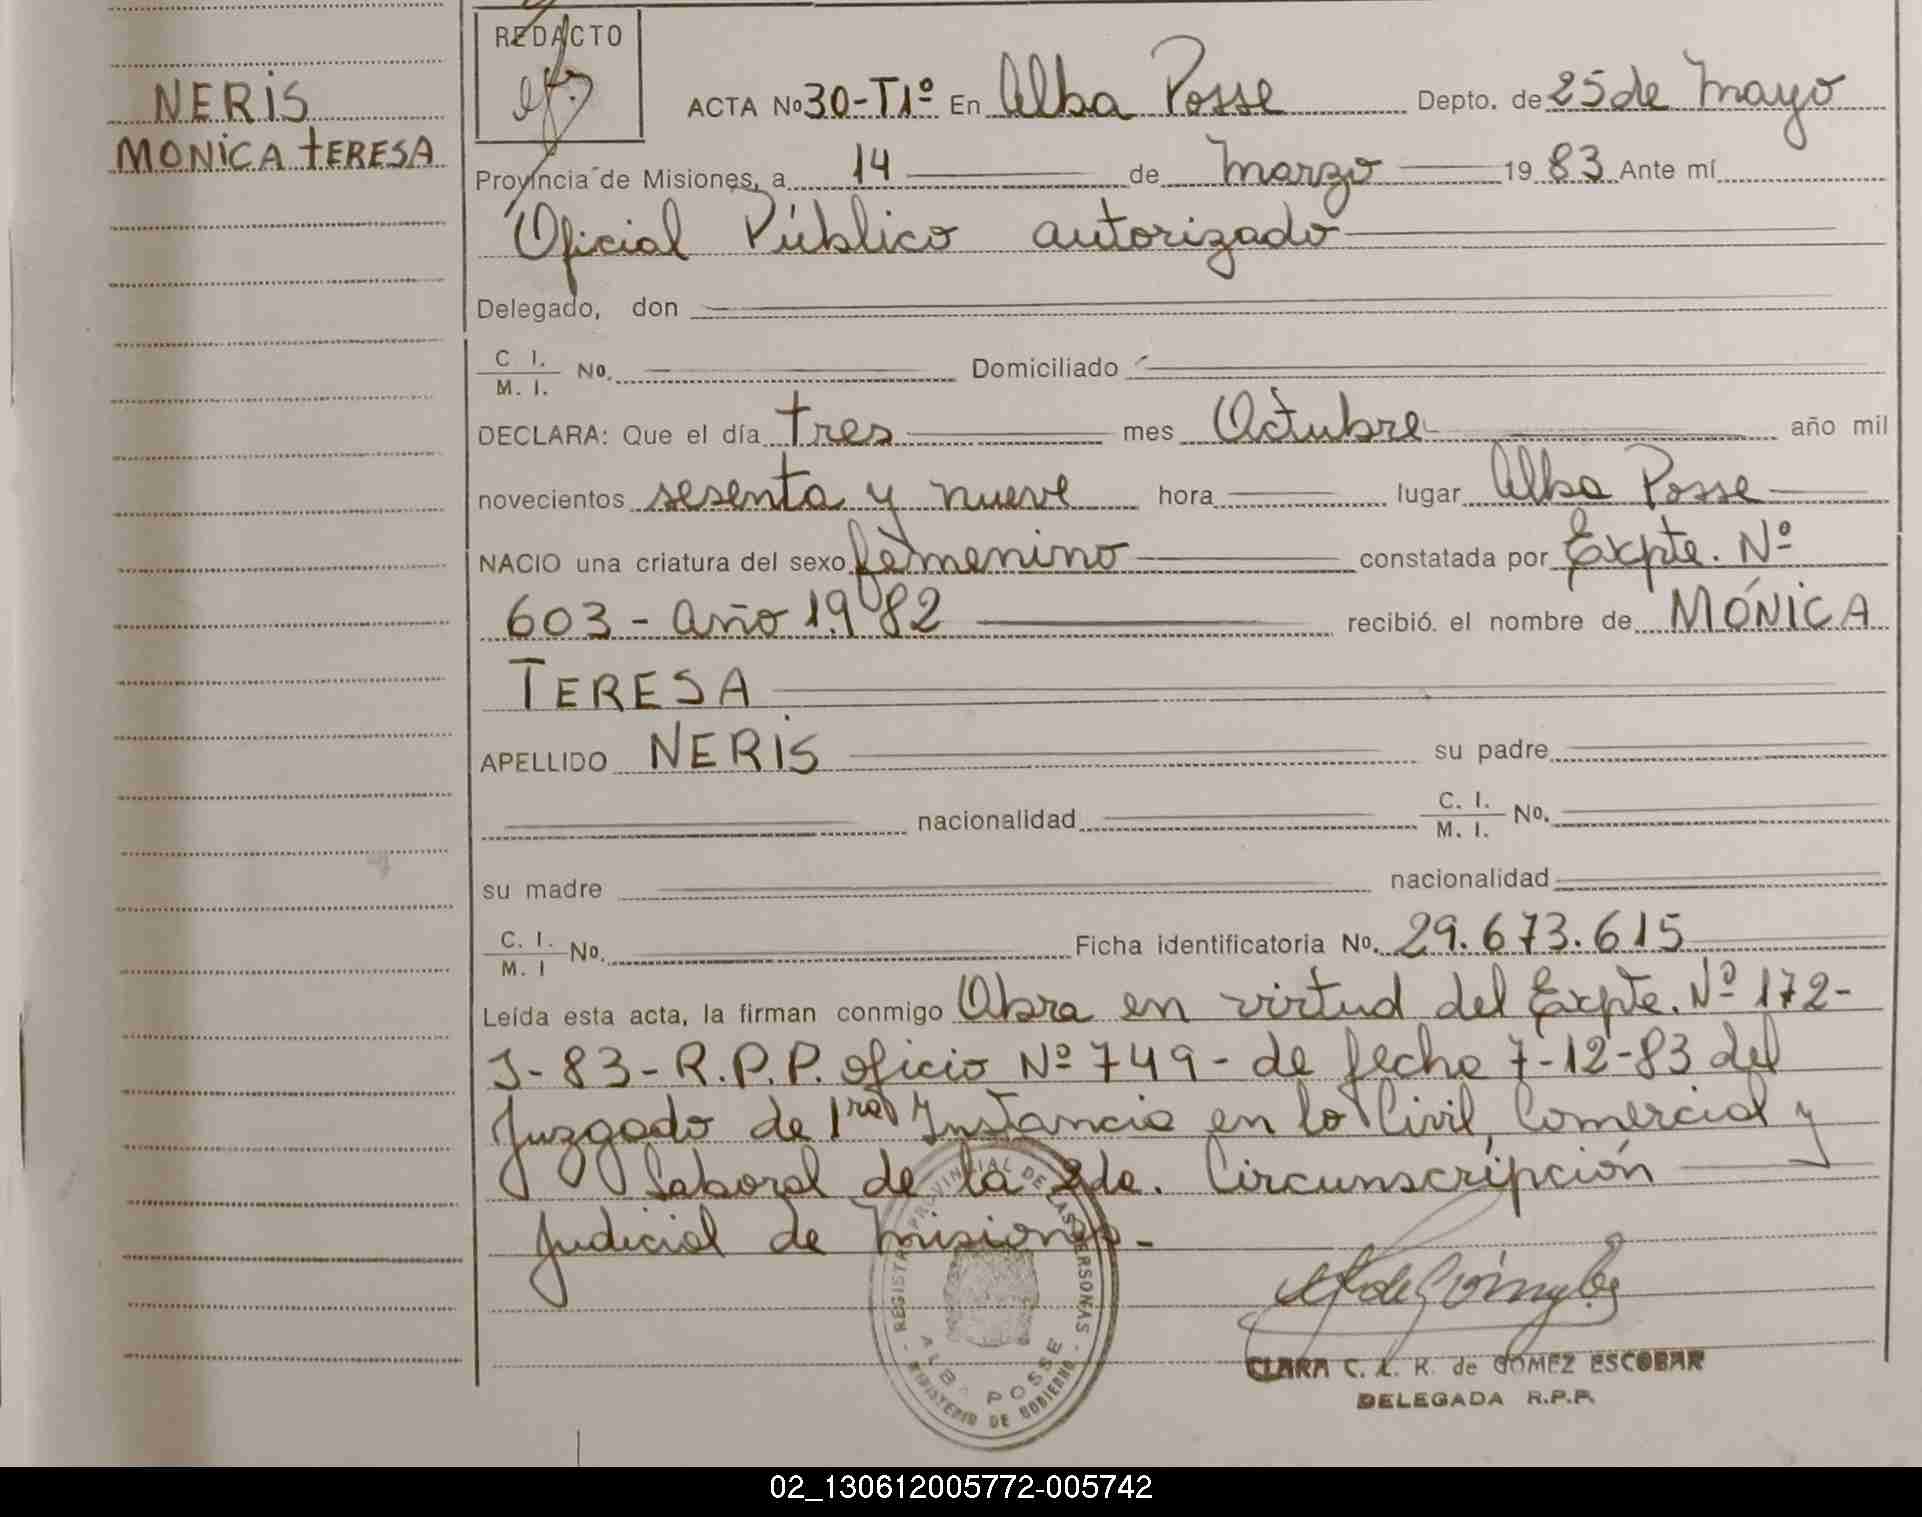 REDACTO
NERIS
MONICA TERESA
ACTA No 30-T1º En Alba Posse Depto. de 25 de Mayo
Provincia de Misiones, a 14 de Marzo 19 83 Ante mí
Oficial Público autorizado
Delegado, don
C I. / M. I. No. Domiciliado
DECLARA: Que el día tres mes Octubre año mil
novecientos sesenta y nueve hora lugar Alba Posse
NACIO una criatura del sexo femenino constatada por Expte. Nº
603 - año 1.982 recibió. el nombre de MÓNICA
TERESA
APELLIDO NERIS su padre
nacionalidad C. I. / M. I. No.
su madre nacionalidad
C. I. / M. I No. Ficha identificatoria No. 29.673.615
Leída esta acta, la firman conmigo Obra en virtud del Expte. Nº 172-
J-83-R.P.P. oficio Nº 749- de fecha 7-12-83 del
Juzgado de 1ra Instancia en lo Civil, Comercial y
Laboral de la 2da. Circunscripción
Judicial de Misiones.-
REGISTRO PROVINCIAL DE LAS PERSONAS
ALBA POSSE
- MINISTERIO DE GOBIERNO -
CLARA C. L. R. de GOMEZ ESCOBAR
DELEGADA R.P.P.
02_130612005772-005742